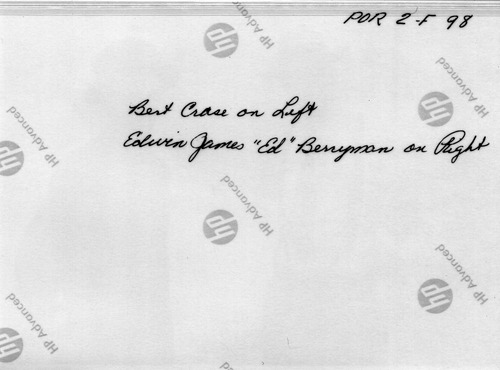 POR 2-F 98
hp HP Advanced
hp HP Advanced
Bert Crase on Left
Edwin James "Ed" Berryman on Right
hp HP Advanced
hp HP Advanced
hp HP Advanced
hp HP Advanced